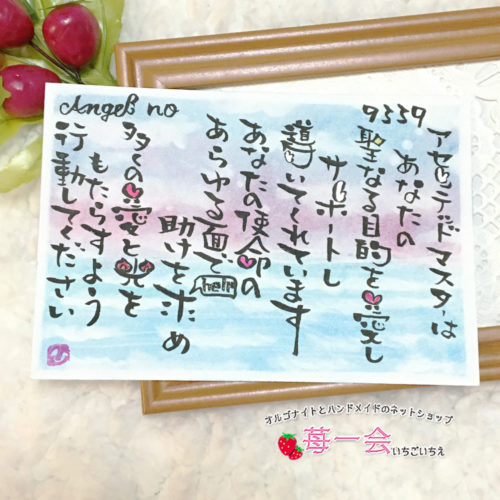 Angel no
9339
アセンデッドマスターは
あなたの
聖なる目的を愛し
サポートし
導いてくれています
あなたの使命の
あらゆる面で
help
助けを求め
多くの愛と光を
もたらすよう
行動してください
ひ
オルゴナイトとハンドメイドのネットショップ
苺一会
いちごいちえ